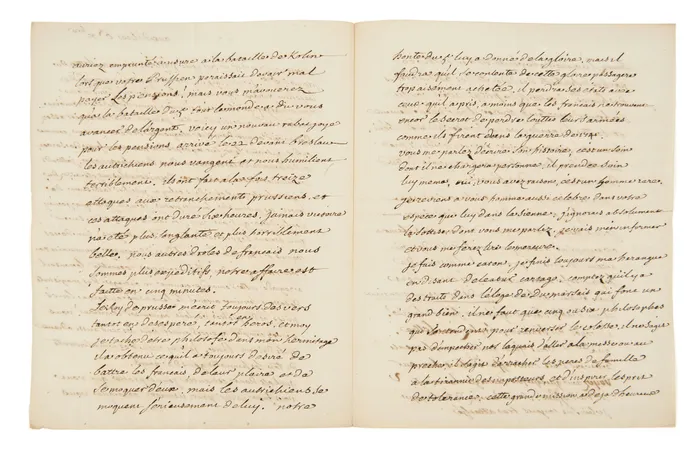 auriez emprunté a usure a la bataille de Kolin
lors que votre prussien paraissait devoir mal
payer les pensions, mais vous m'avouerez
qu'a la bataille du 5e tout le monde a du vous
avancer de l'argent. voicy un nouveau rabat joye
pour les pensions arrivé le 22 devant breslau
les autrichiens nous vengent et nous humilient
terriblement. ils ont fait a la fois treize
attaques aux retranchements prussiens, et
ces attaques ont duré six heures, jamais victoire
n'a eté plus sanglante et plus horriblement
belle. nous autres droles de francais nous
sommes plus expeditifs, notre affaire est
faitte en cinq minutes.
le Roy de prusse m'ecrit toujours des vers
tantot en desesperé, tantot en heros, et moy
je tache d'etre philosofe dans mon hermitage
il a obtenu ce qu'il a toujours desiré de
battre les francais de leur plaire et de
se moquer d'eux, mais les autrichiens se
moquent serieusement de luy. notre
honte du 5e luy a donné de la gloire, mais il
faudra qu'il se contente de cette gloire passagere
trop aisement achetée, il perdra ses etats avec
ceux qu'il a pris, a moins que les francais ne trouvent
encor le secret de perdre touttes leurs armées
comme ils firent dans la guerre de 1741.
vous me parlez d'ecrire son histoire, c'est un soin
dont il ne chargera personne, il prend ce soin
luy meme, oui, vous avez raison, c'est un homme rare.
je reviens a vous homme aussi celebre dans votre
espece que luy dans la sienne, j'ignorais absolument
la sottise dont vous me parlez, je vais m'en informer
et vous me ferez lire le mercure.
je fais comme caton, je finis toujours ma harangue
en disant deleatur cartago, comptez qu'il y a
des traits dans l'eloge de du marsais qui font un
grand bien, il ne faut que cinq ou six philosophes
qui s'entendent pour renverser le colosse. il ne s'agit
pas d'empecher nos laquais d'aller a la messe ou au
preche, il s'agit d'arracher les peres de famille
a la tirannie des imposteurs, et d'inspirer l'esprit
de tolerance, cette grande mission a deja d'heureux